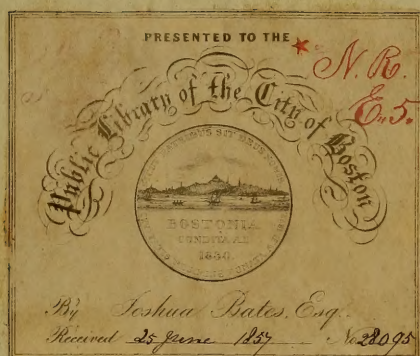 PRESENTED TO THE
N. R.
E. 5.
Public Library of the City of Boston
SICUT PATRIBUS SIT DEUS NOBIS
BOSTONIA
CONDITA A.D.
1630.
By Joshua Bates, Esq.
Received 25 June 1857 No. 28095